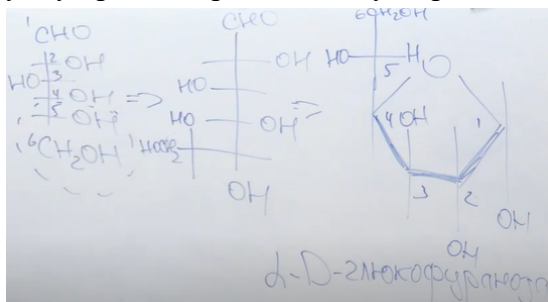 1CHO
2 OH
HO 3
4 OH
5 OH
6CH2OH
=>
CHO
OH
HO
HO
OH
OH
=>
6CH2OH
HO H
5 O
4 OH 1
3 2
OH
OH
α-D-глюкофураноза